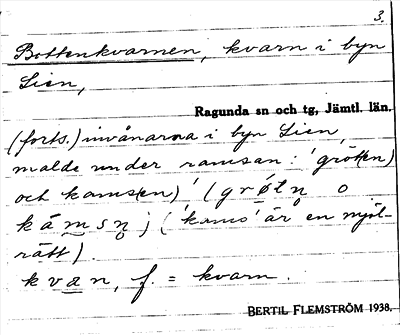 3.
Bottenkvarnen, kvarn i byn
Lien,
Ragunda sn och tg, Jämtl. län.
(forts.) invånarna i byn Lien,
malde under ramsan: 'gröt(en)
och kams(en)' (grøtn o
kámsn); ('kams' är en mjöl-
rätt).
kvan, f. = kvarn.
BERTIL FLEMSTRÖM 1938.